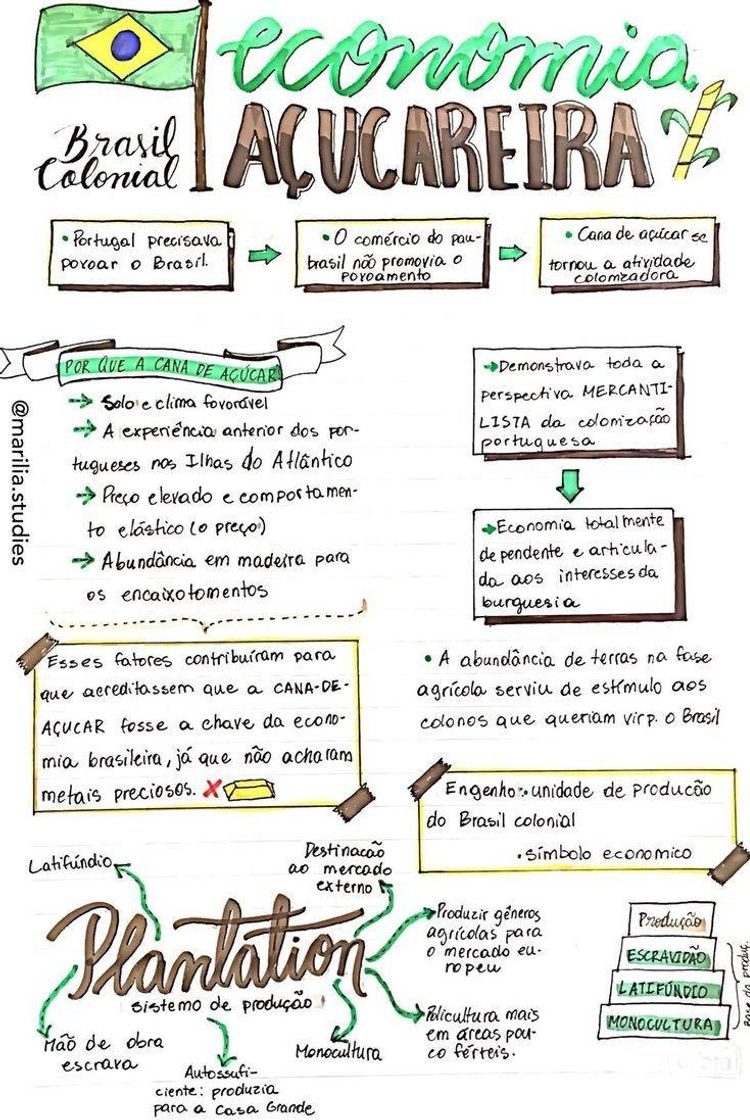 economia
AÇUCAREIRA
Brasil
Colonial
• Portugal precisava
povoar o Brasil.
• O comércio do pau-
brasil não promovia o
povoamento
• Cana de açúcar se
tornou a atividade
colonizadora
POR QUE A CANA DE AÇÚCAR
Solo e clima favorável
A experiência anterior dos por-
tugueses nas Ilhas do Atlântico
Preço elevado e comportamen-
to elástico (o preço)
Abundância em madeira para
os encaixotamentos
@marilia.studies
Demonstrava toda a
perspectiva MERCANTI-
LISTA da colonização
portuguesa
Economia totalmente
dependente e articula-
da aos interesses da
burguesia
Esses fatores contribuíram para
que acreditassem que a CANA-DE-
AÇUCAR fosse a chave da econo-
mia brasileira, já que não acharam
metais preciosos.
• A abundância de terras na fase
agrícola serviu de estímulo aos
colonos que queriam vir p. o Brasil
Engenho: unidade de produção
do Brasil colonial
• símbolo economico
Latifúndio
Destinação
ao mercado
externo
Produzir gêneros
agrícolas para
o mercado eu-
ropeu
Plantation
sistema de produção
Policultura mais
em áreas pou-
co férteis.
Mão de obra
escrava
Autossufi-
ciente: produzia
para a Casa Grande
Monocultura
Produção
ESCRAVIDÃO
LATIFÚNDIO
MONOCULTURA
Base da produç.